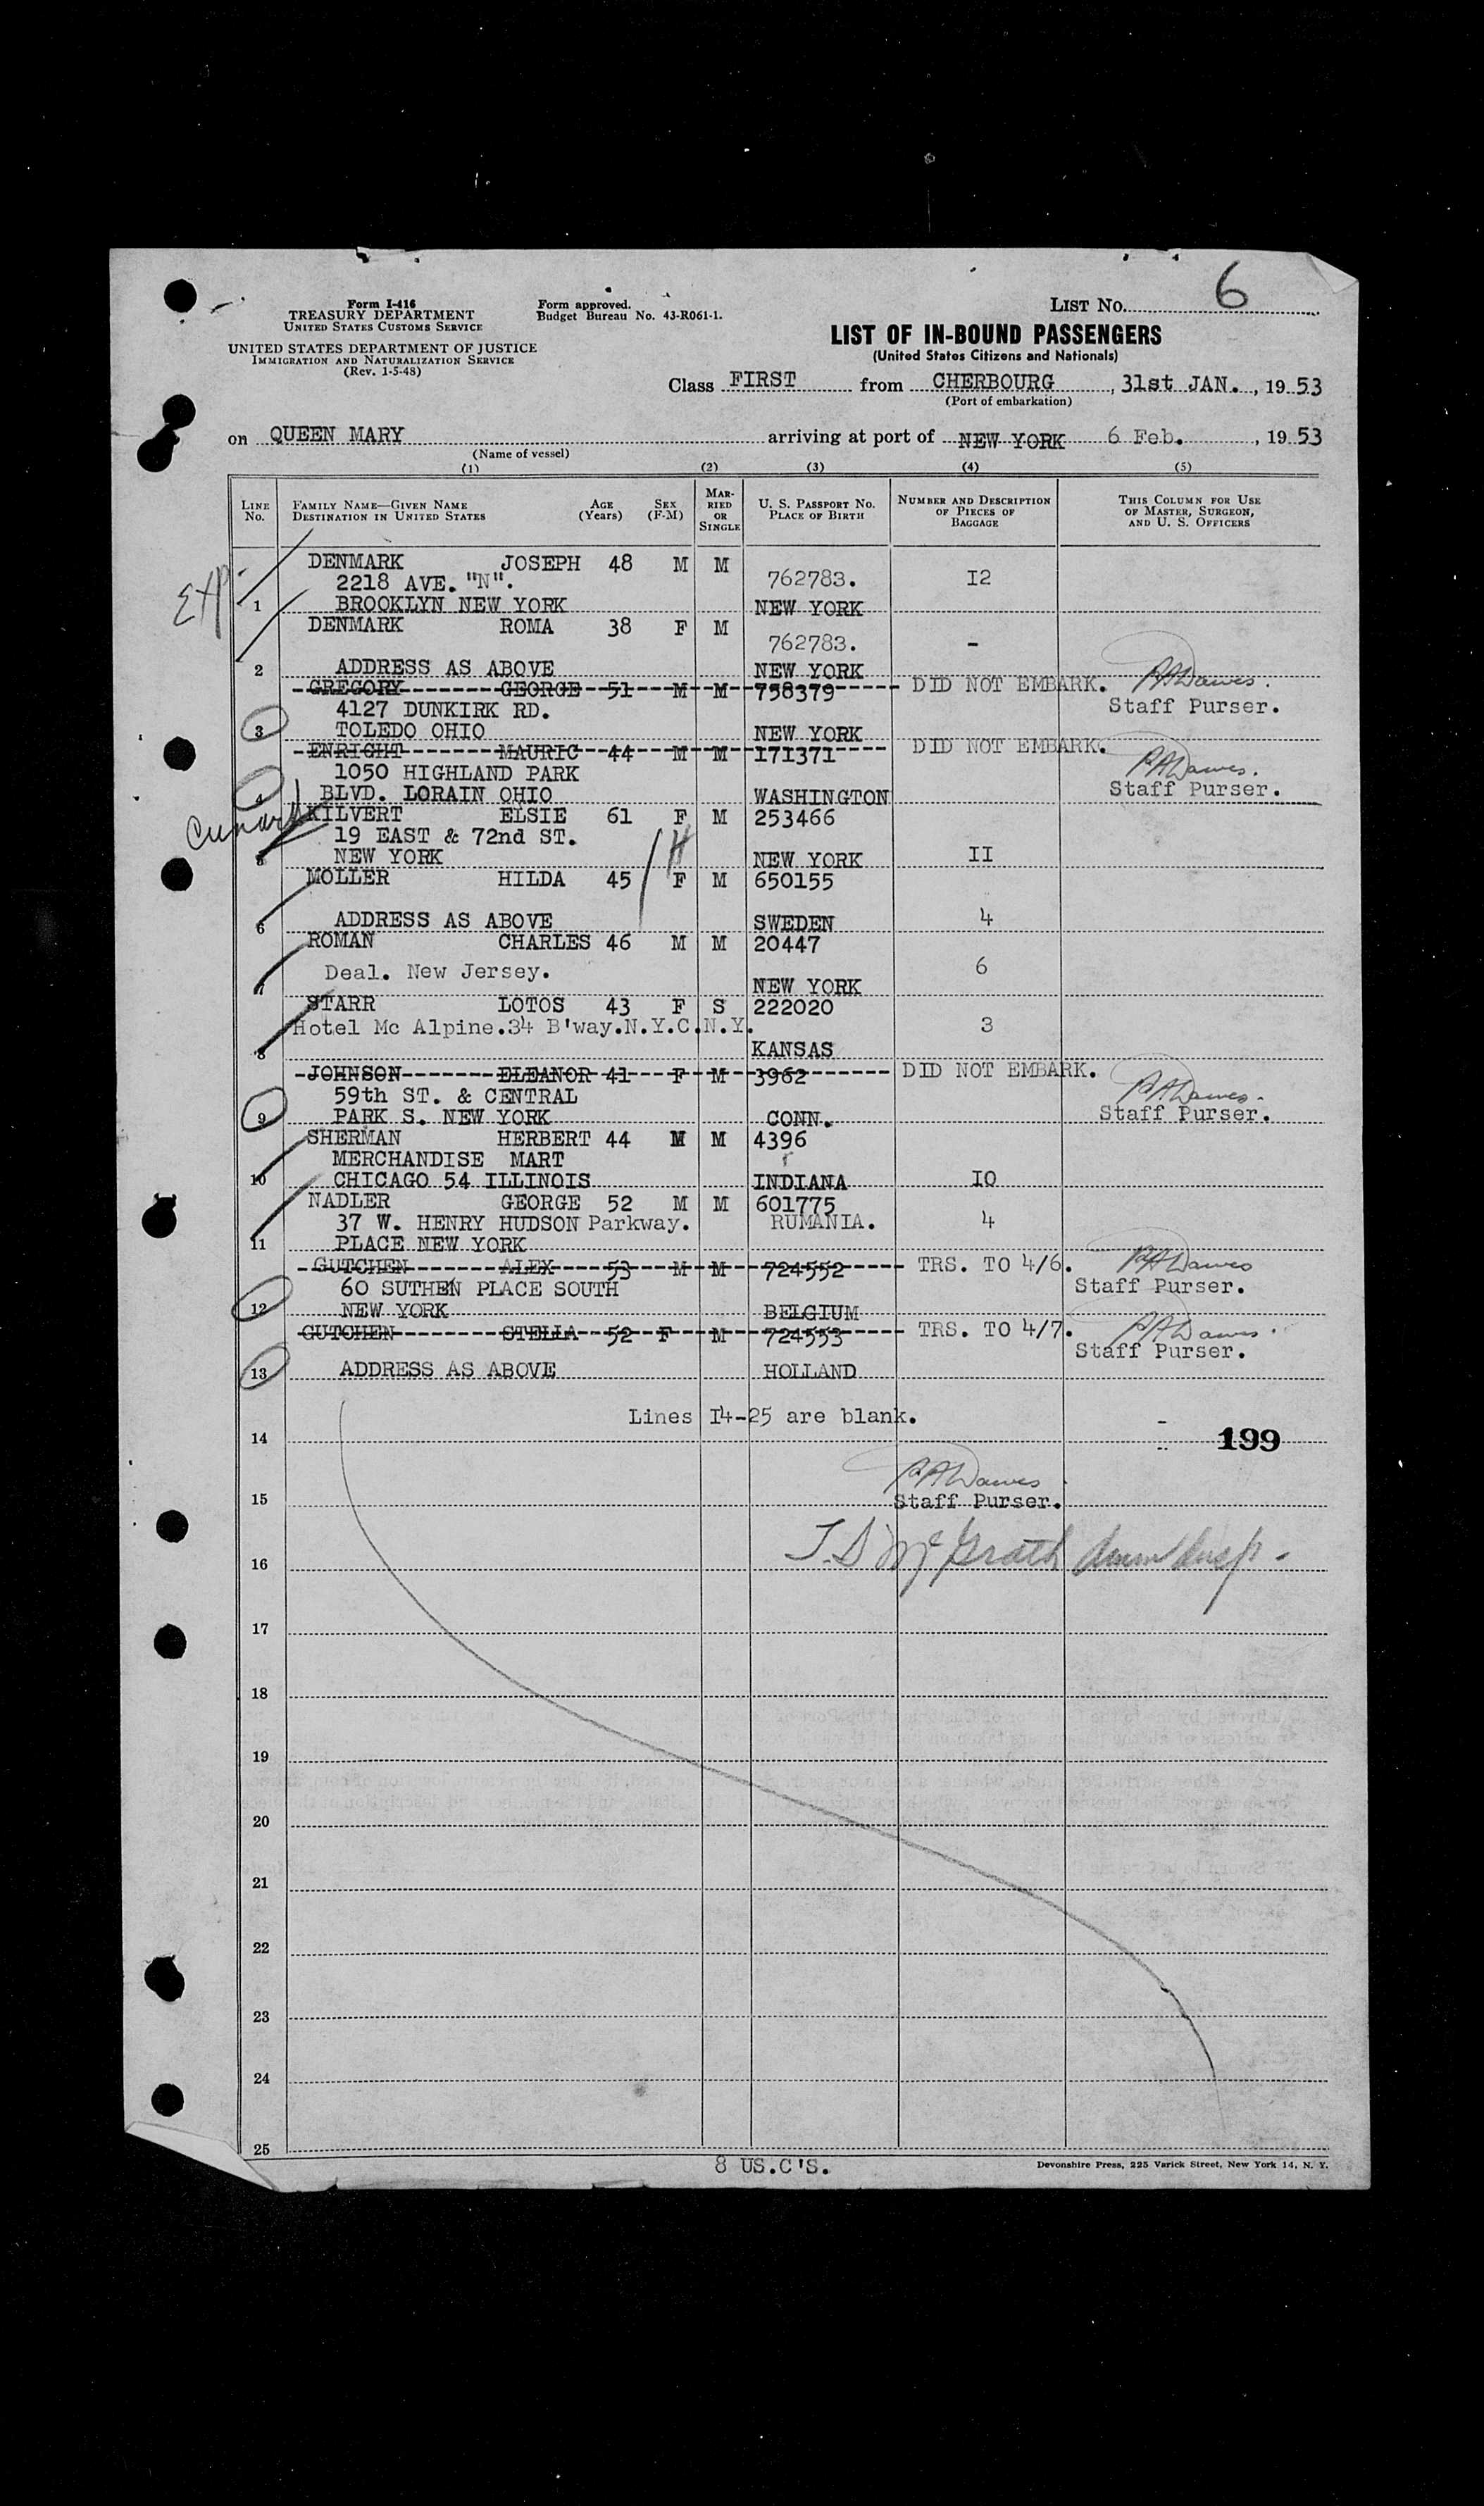 6
LIST No.
Form I-416
TREASURY DEPARTMENT
UNITED STATES CUSTOMS SERVICE
UNITED STATES DEPARTMENT OF JUSTICE
IMMIGRATION AND NATURALIZATION SERVICE
(Rev. 1-5-48)
Form approved.
Budget Bureau No. 43-R061-1.
LIST OF IN-BOUND PASSENGERS
(United States Citizens and Nationals)
Class FIRST from CHERBOURG, 31st JAN., 1953
(Port of embarkation)
on QUEEN MARY arriving at port of NEW YORK 6 Feb., 1953
(Name of vessel)
(1) (2) (3) (4) (5)
LINE No. FAMILY NAME—GIVEN NAME DESTINATION IN UNITED STATES AGE (Years) SEX (F-M) MARRIED OR SINGLE U. S. PASSPORT No. PLACE OF BIRTH NUMBER AND DESCRIPTION OF PIECES OF BAGGAGE THIS COLUMN FOR USE OF MASTER, SURGEON, AND U. S. OFFICERS
DENMARK JOSEPH 48 M M
2218 AVE. "N". 762783. I2
1 BROOKLYN NEW YORK NEW YORK
DENMARK ROMA 38 F M
762783. -
2 ADDRESS AS ABOVE NEW YORK
GREGORY GEORGE 51 M M 758379 DID NOT EMBARK. PADawes.
4127 DUNKIRK RD. Staff Purser.
3 TOLEDO OHIO NEW YORK
ENRIGHT MAURIC 44 M M 171371 DID NOT EMBARK.
1050 HIGHLAND PARK PADawes.
4 BLVD. LORAIN OHIO WASHINGTON Staff Purser.
Cunard KILVERT ELSIE 61 F M 253466
19 EAST & 72nd ST. H
5 NEW YORK NEW YORK II
MOLLER HILDA 45 F M 650155
6 ADDRESS AS ABOVE SWEDEN 4
ROMAN CHARLES 46 M M 20447
Deal. New Jersey. 6
7 NEW YORK
STARR LOTOS 43 F S 222020
Hotel Mc Alpine.34 B'way.N.Y.C.N.Y. 3
8 KANSAS
JOHNSON ELEANOR 41 F M 3962 DID NOT EMBARK.
59th ST. & CENTRAL PADawes.
9 PARK S. NEW YORK CONN. Staff Purser.
SHERMAN HERBERT 44 M M 4396
MERCHANDISE MART
10 CHICAGO 54 ILLINOIS INDIANA IO
NADLER GEORGE 52 M M 601775
37 W. HENRY HUDSON Parkway. RUMANIA. 4
11 PLACE NEW YORK
GUTCHEN ALEX 53 M M 724552 TRS. TO 4/6. PADawes
60 SUTHEN PLACE SOUTH Staff Purser.
12 NEW YORK BELGIUM
GUTCHEN STELLA 52 F M 724553 TRS. TO 4/7. PADawes.
Staff Purser.
13 ADDRESS AS ABOVE HOLLAND
Lines I4-25 are blank.
14 199
PADawes.
15 Staff Purser.
16 T. S McGrath Imm Insp.
17
18
19
20
21
22
23
24
25
8 US.C'S.
Devonshire Press, 225 Varick Street, New York 14, N. Y.